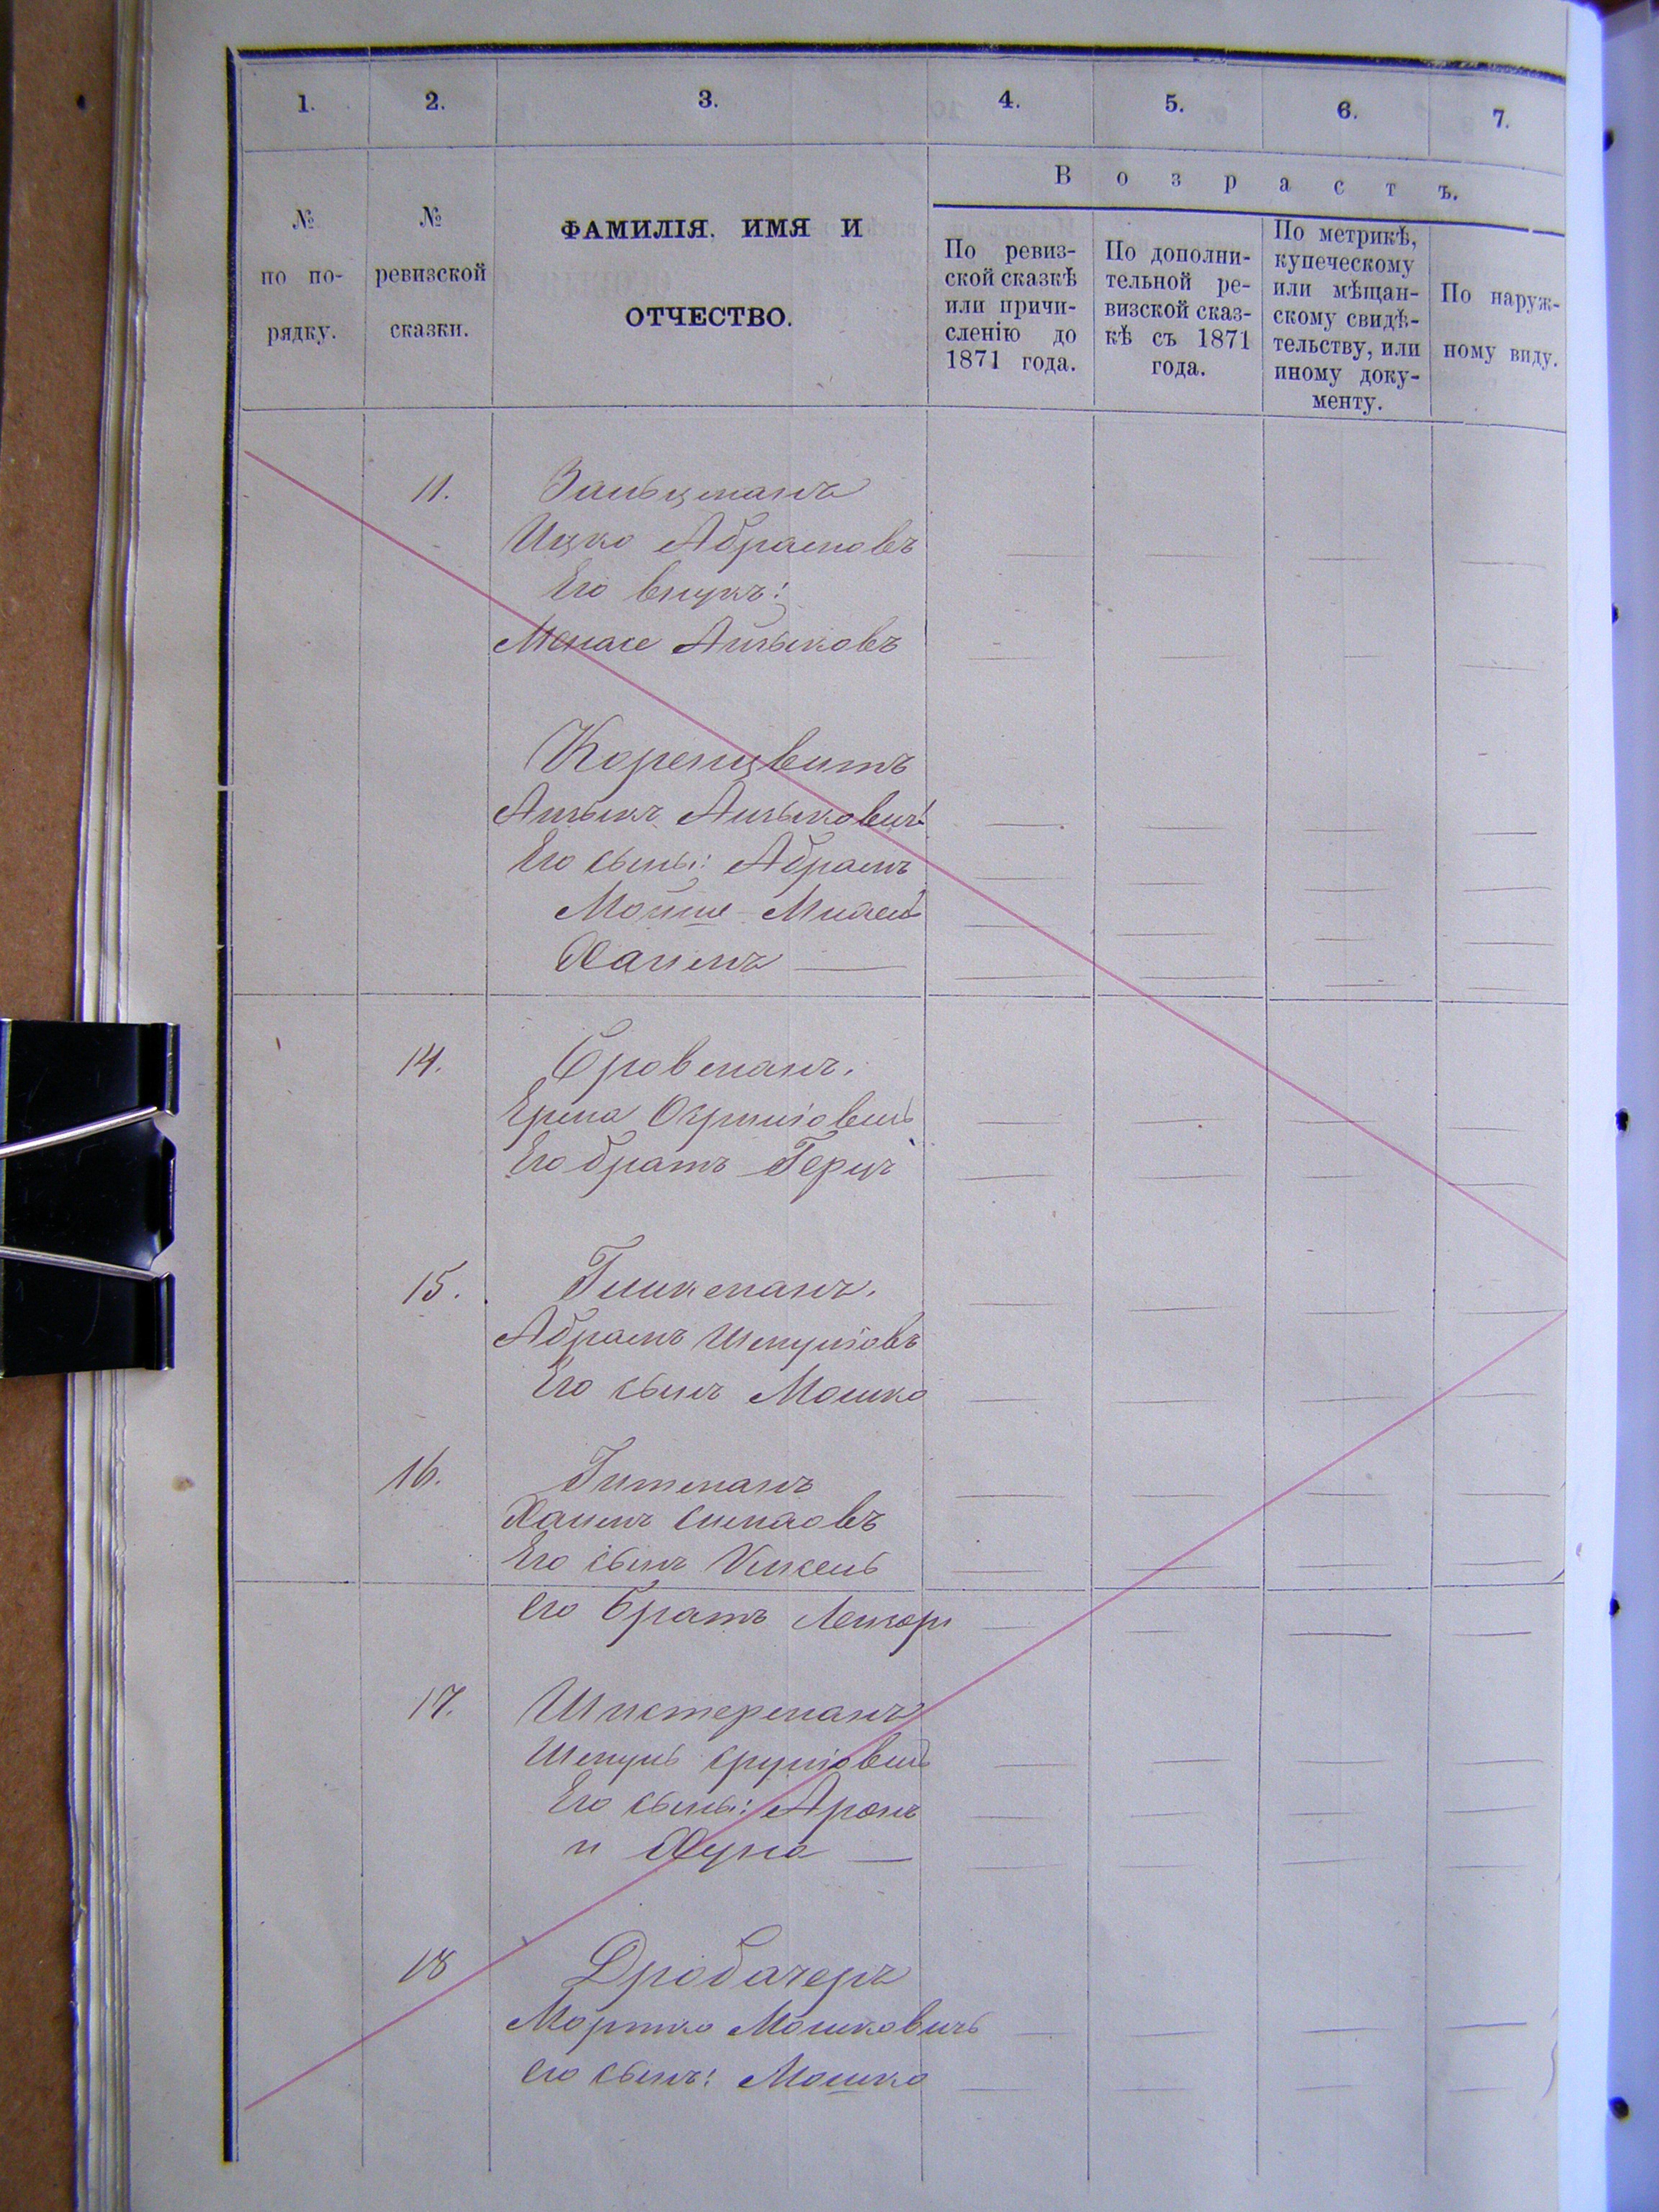 1. 2. 3. 4. 5. 6. 7.
№ по по-рядку.
№ ревизской сказки.
ФАМИЛІЯ. ИМЯ И
ОТЧЕСТВО.
Возрастъ.
По ревиз-
ской сказкѣ
или причи-
сленію до
1871 года.
По дополни-
тельной ре-
визской сказ-
кѣ съ 1871
года.
По метрикѣ,
купеческому
или мѣщан-
скому свидѣ-
тельству, или
иному доку-
менту.
По наруж-
ному виду.
11. Зальцманъ
Ицко Абрамовъ
Его внукъ:
Менаше Айзыковъ
Коренцвитъ
Айзыкъ Айзыковичъ
Его сыны: Абрамъ
Мойше
Хаимъ
14. Бровманъ.
Его братъ Герцъ
15. Гликманъ.
Абрамъ Шмулiовъ
Его сынъ Мошко
16. Гитманъ
Хаимъ
Его сынъ Кисель
его братъ Лейзоръ
17. Шистерманъ
Шмуль Срулiовичъ
Его сыны: Аронъ
и Хуна
18 Дробачеръ
Мортко Мошковичъ
его сынъ: Мошко